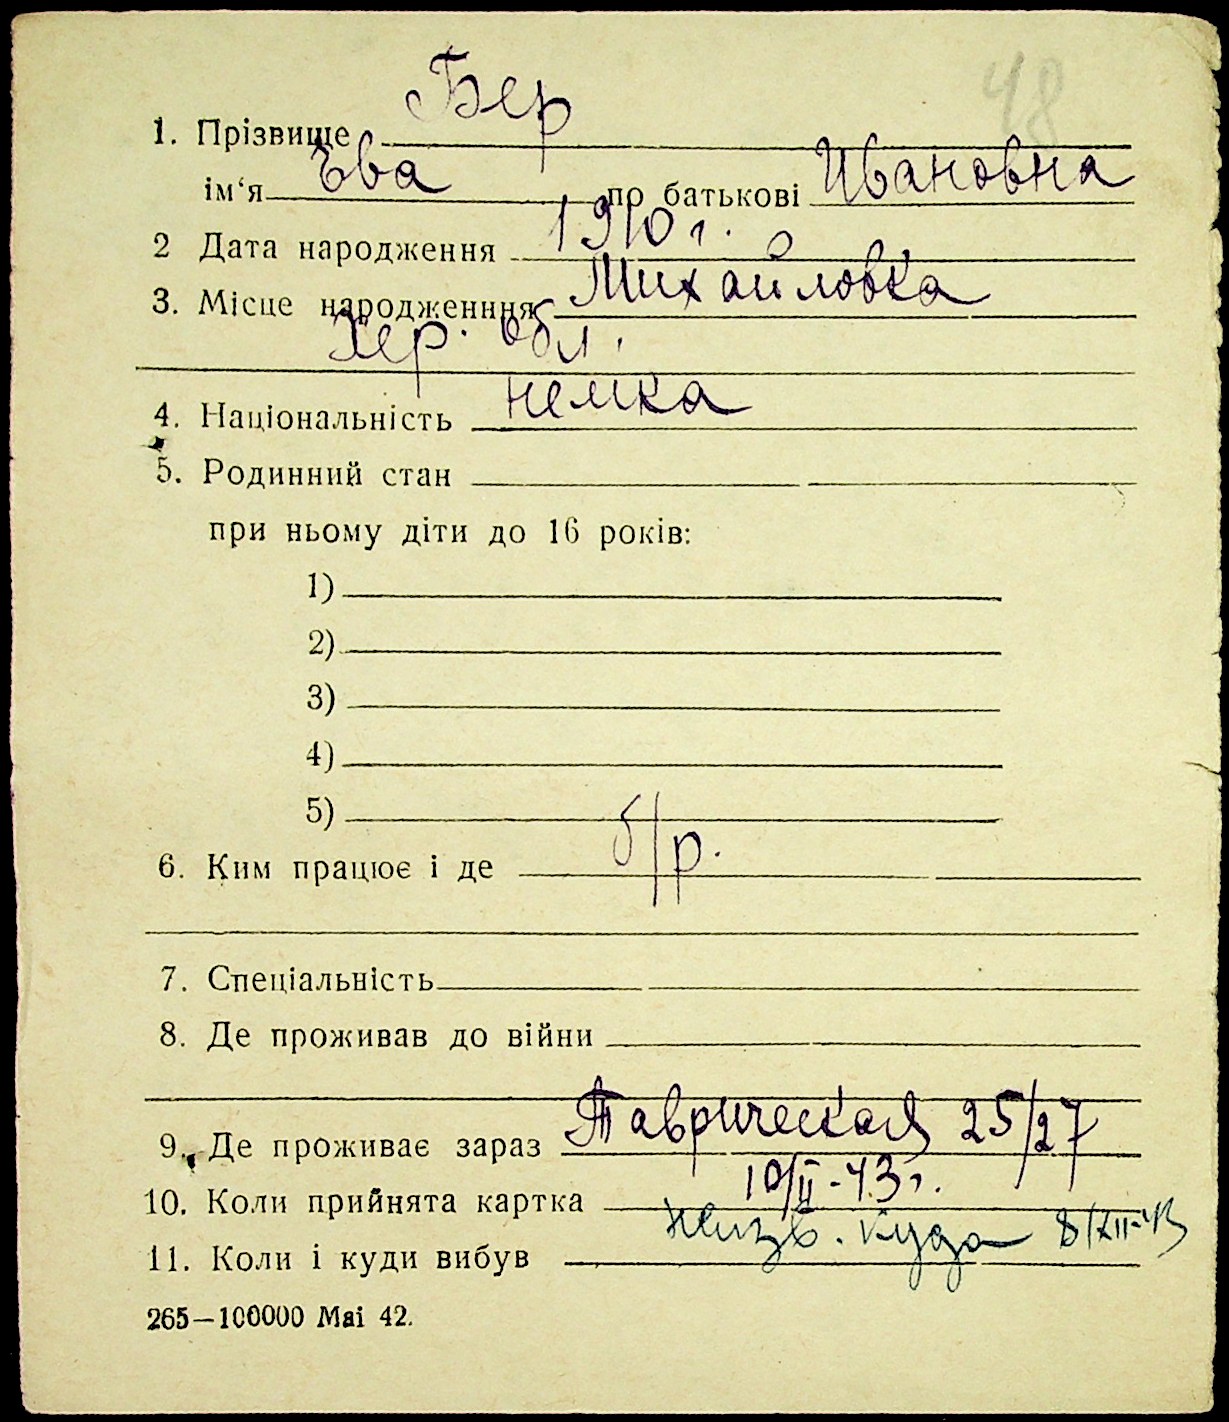 48
1. Прізвище Бер
ім‘я Ева по батькові Ивановна
2 Дата народження 1910 г.
3. Місце народженння Михайловка
Хер. обл.
4. Національність немка
5. Родинний стан
при ньому діти до 16 років:
1)
2)
3)
4)
5)
6. Ким працює і де б/р.
7. Спеціальність
8. Де проживав до війни
9. Де проживає зараз Таврическая 25/27
10. Коли прийнята картка 10/II-43 г.
11. Коли і куди вибув неизв. куда 8/XII-43
265—100000 Mai 42.